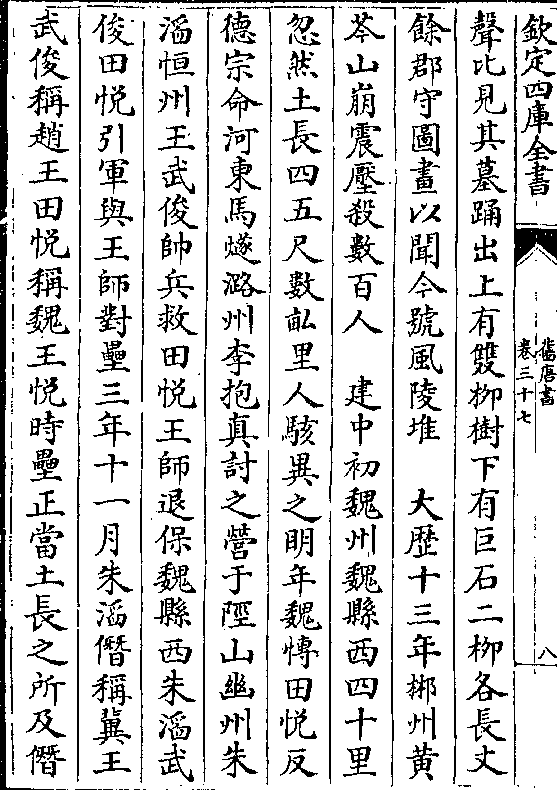 欽定四庫全書
舊唐書
卷三十七
八
聲比見其墓踊出上有雙柳樹下有巨石二柳各長丈
餘郡守圖畫以聞今號風陵堆　大歷十三年郴州黄
芩山崩震壓殺數百人　建中初魏州魏縣西四十里
忽然土長四五尺數畝里人駭異之明年魏博田悅反
德宗命河東馬燧潞州李抱真討之營于陘山幽州朱
滔恒州王武俊帥兵救田悅王師退保魏縣西朱滔武
俊田悅引軍與王師對壘三年十一月朱滔僭稱冀王
武俊稱趙王田悅稱魏王悅時壘正當土長之所及僭